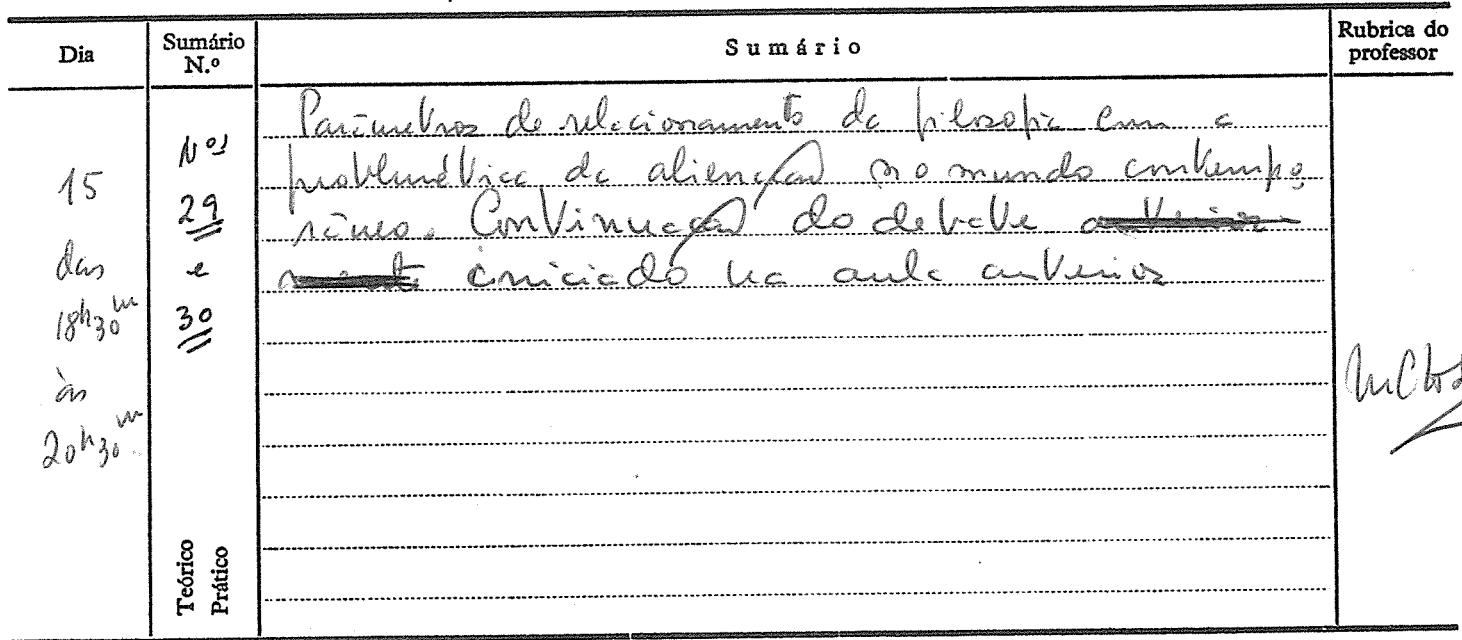 Dia
Sumário
N.º
Sumário
Rubrica do
professor
15
das
18h30m
às
20h30m
Nºs
29
e
30
Teórico
Prático
Parâmetros de relacionamento da filosofia com a
problemática da alienação no mundo contempo
râneo. Continuação do debate
iniciado na aula anterior